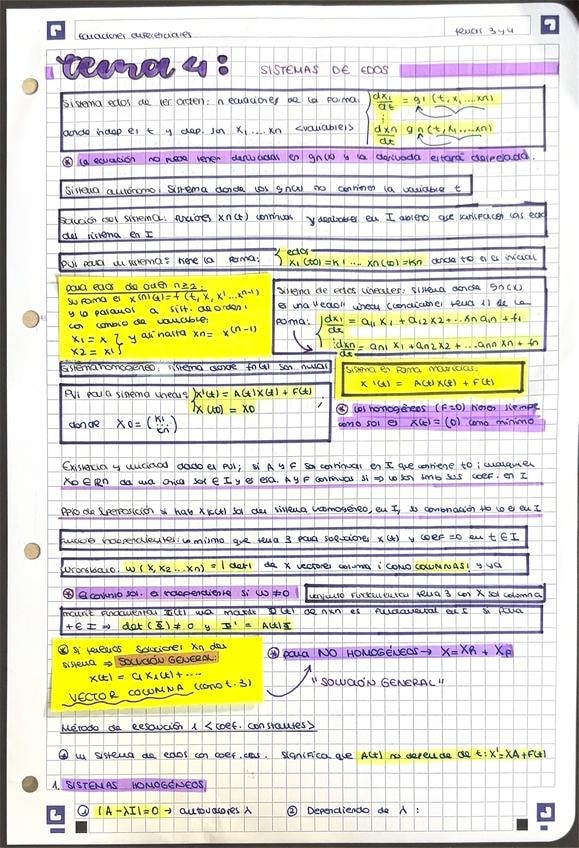 Ecuaciones diferenciales
temas 3 y 4
tema 4:
SISTEMAS DE EDOS
Sistema edos de 1er orden: n ecuaciones de la forma
dx1/dt = g1 (t, x1 ... xn)
donde indep es t y dep. son x1 ... xn <variables>
dxn/dt gn (t, x1 ... xn)
la ecuación no puede tener derivadas en gn(x) y la derivada estará despejada.
Sistema autónomo: Sistema donde los gn(x) no contienen la variable t
Solución del sistema: funciones xn(t) continuas y derivables en I abierto que satisfacen las edos
del sistema en I
PVI para un sistema: tiene la forma: { edos x1 (t0) = k1 ... xn (t0) = kn donde t0 es la inicial
para edos de orden n≥2:
su forma es x^(n)(t) = f (t, x, x' ... x^(n-1))
y lo pasamos a sist. de orden 1
con cambio de variable:
x1 = x
x2 = x1'
y así hasta xn = x^(n-1)
Sistema de edos lineales: sistema donde gn(x)
es una "edo" lineal (condiciones tema 1) de la
forma:
dx1/dt = a11 x1 + a12 x2 + ... xn a1n + f1
dxn/dt = an1 x1 + an2 x2 + ... ann xn + fn
Sistema homogéneo: sistema donde fn(t) son nulas
Sistema en forma matricial:
x'(t) = A(t) x(t) + F(t)
PVI para sistema lineal:
x'(t) = A(t)x(t) + F(t)
x (t0) = x0
donde x0 = (k1 ... kn)
los homogéneos (F=0) tienen siempre
como sol el x(t) = (0) como mínimo
Existencia y unicidad dado el PVI; si A y F son continuas en I que contiene t0; cualquier
x0 ∈ Rn da una única sol ∈ I y es esa. A y F continuas si => lo son todos sus coef. en I
Ppio de superposición si hay xk(t) sol del sistema homogéneo, en I, su combinación tb lo es en I
Funciones independientes: lo mismo que tema 3 para soluciones x(t) y coef = 0 en t ∈ I
Wronskiano: W (x1, x2 ... xn) = | det | de x vectores columna ¡como COLUMNAS! y ya
El conjunto sol. es independiente si W ≠ 0
conjunto fundamental tema 3 con x sol columna
matriz fundamental Φ(t) una matriz Φ(t) de nxn es fundamental en I si para
t ∈ I => det (Φ) ≠ 0 y Φ' = A(t)Φ
si tenemos soluciones xn del
sistema => SOLUCIÓN GENERAL:
x(t) = c1 x1(t) + ....
VECTOR COLUMNA (como t.3)
para NO HOMOGÉNEOS → X = Xh + Xp
"SOLUCIÓN GENERAL"
Método de resolución 1 <coef. constantes>
un sistema de edos con coef. ctes. significa que A(t) no depende de t: X' = XA + F(t)
1. SISTEMAS HOMOGÉNEOS
① |A - λI| = 0 → autovalores λ
② Dependiendo de λ :